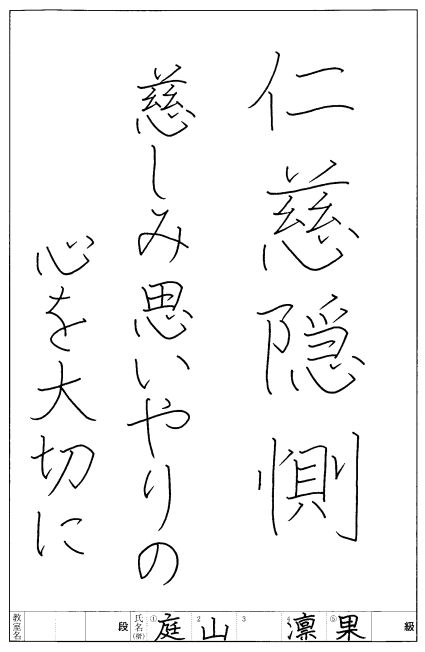 仁慈隠惻
慈しみ思いやりの
心を大切に
級 段 教室名
氏名(楷) ① 庭 2 山 3 4 凛 ⑤ 果